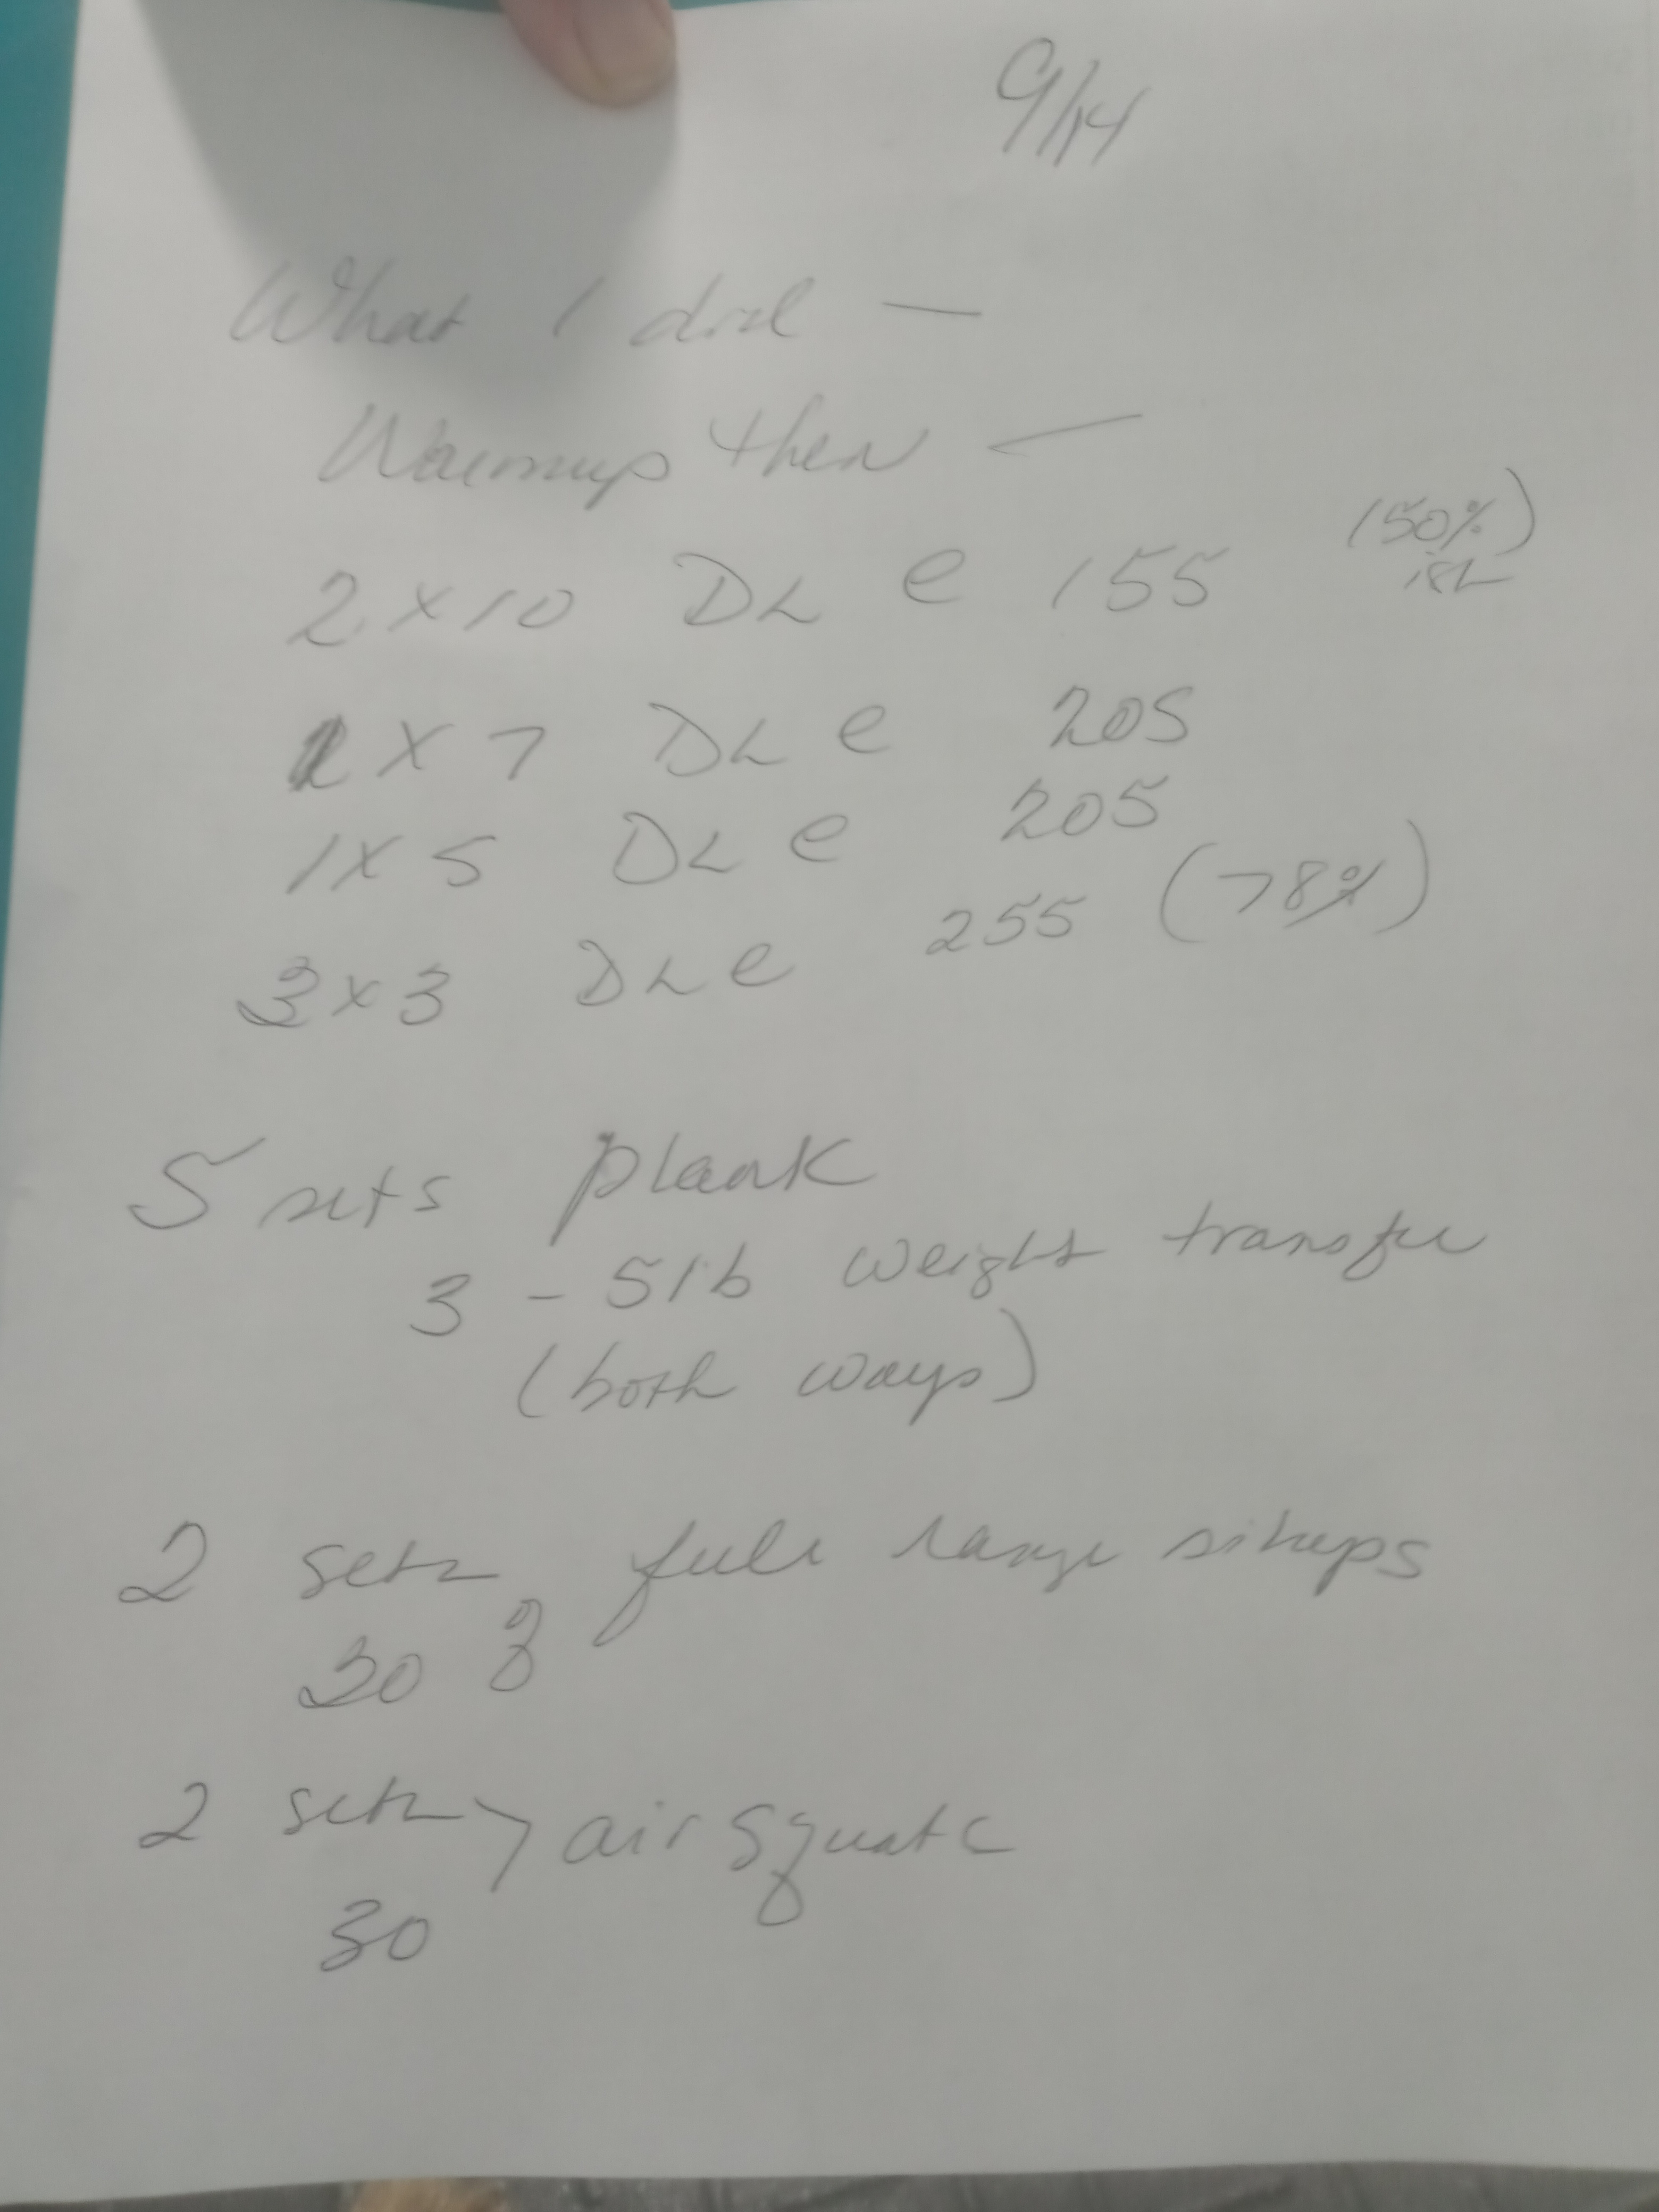 9/14
What I did —
Warmup then —
2 x 10 DL @ 155 (50%)
ish
1 x 7 DL @ 205
1 x 5 DL @ 205
3 x 3 DL @ 255 (78%)
5 sets plank
3 - 5lb weight transfer
(both ways)
2 sets full range situps
30
2 sets air squats
30